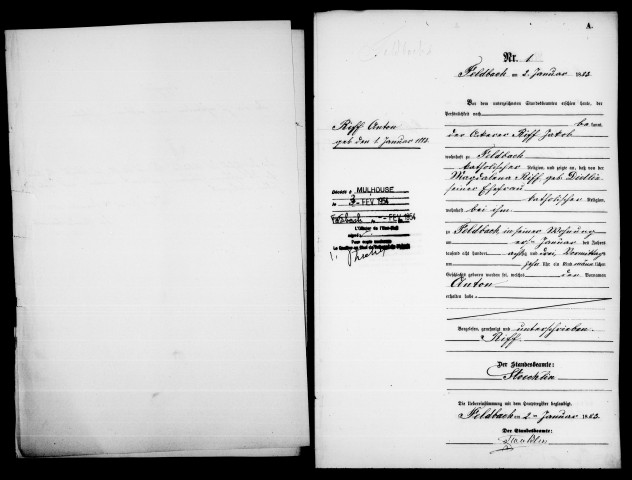 A.
Nr. 1
Feldbach am 2. Januar 1883.
Vor dem unterzeichneten Standesbeamten erschien heute, der
Persönlichkeit nach
be kannt,
der Ackerer Riff Jakob
wohnhaft zu Feldbach
katholischer Religion, und zeigte an, daß von der
Magdalena Riff geb. Dietlin
seiner Ehefrau
katholischer Religion,
wohnhaft bei ihm
zu Feldbach in seiner Wohnung
am ersten Januar des Jahres
tausend acht hundert
achtzig und drei, Vormittags
um zehn Uhr ein Kind männlichen
Geschlechts geboren worden sei, welches den Vornamen
Anton
erhalten habe
Vorgelesen, genehmigt und unterschrieben.
Riff.
Der Standesbeamte:
Stoecklin
Die Uebereinstimmung mit dem Hauptregister beglaubigt.
Feldbach am 2ten Januar 1883.
Der Standesbeamte:
Stoecklin
Riff Anton
geb. den 1. Januar 1883.
Décédé à MULHOUSE
le 3 FEV. 1954
Feldbach le - FEV. 1954
L'Officier de l'Etat-Civil
signé:
Pour copie conforme